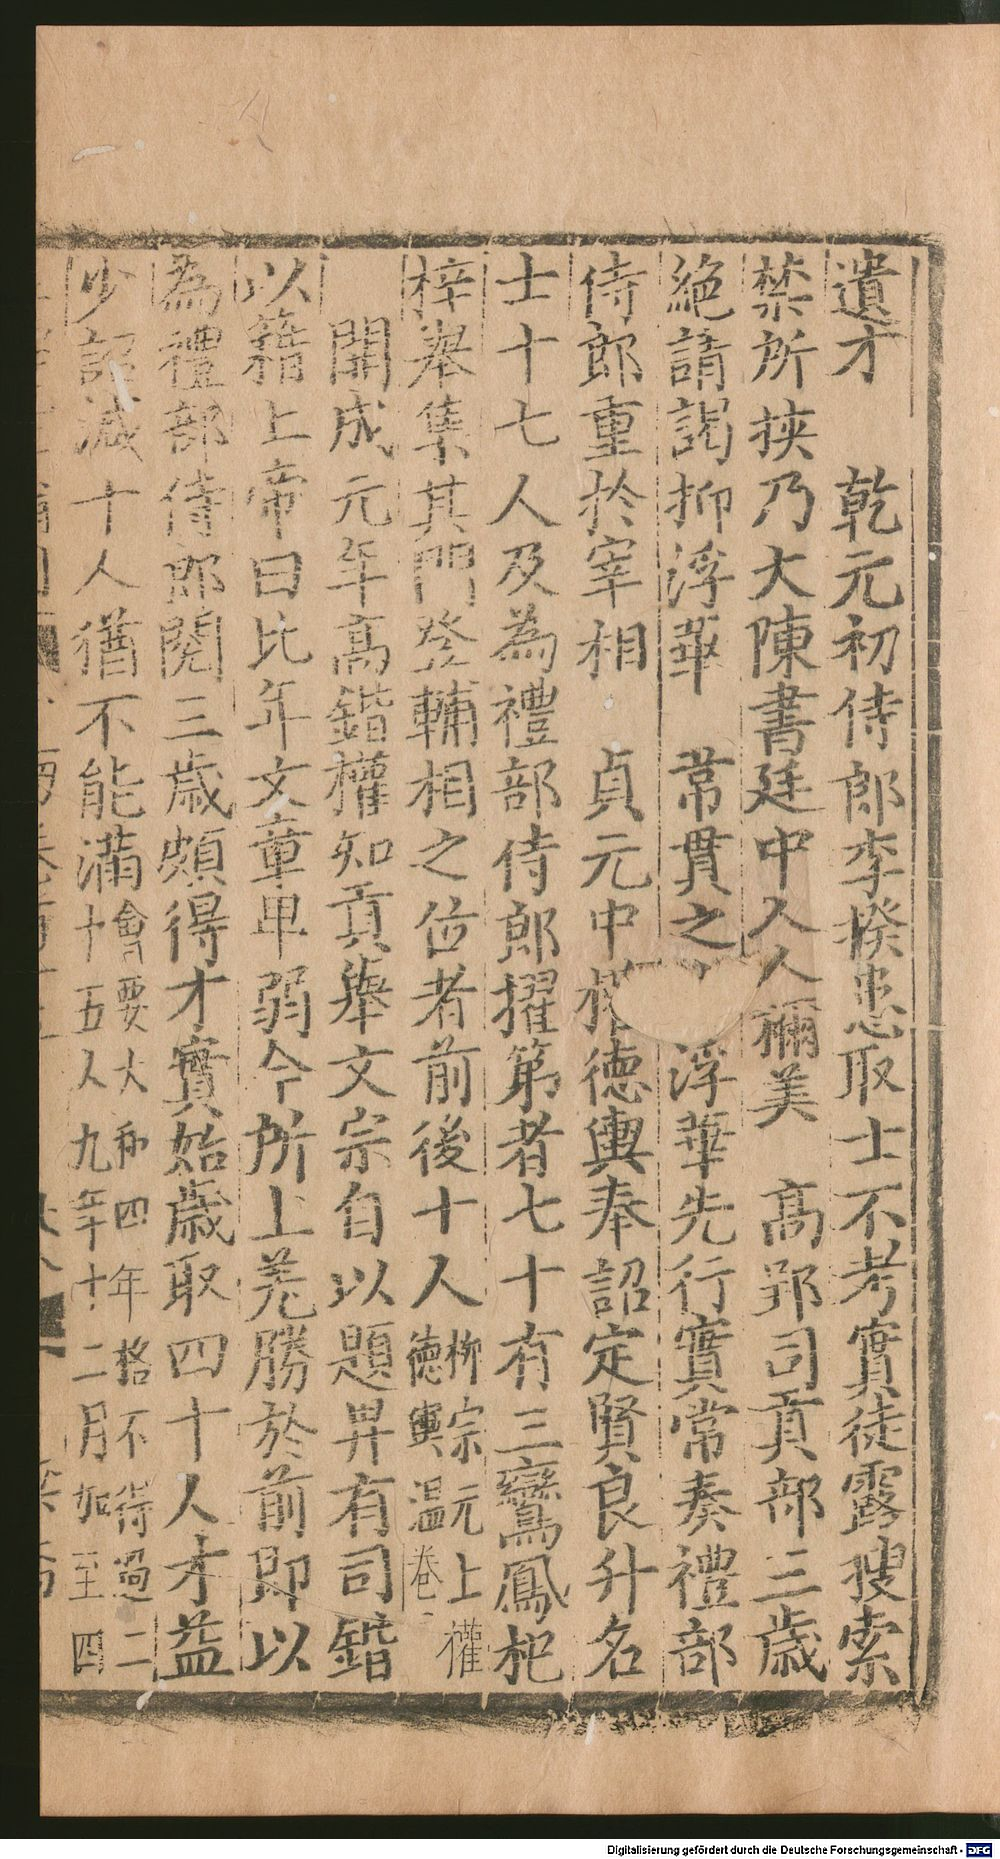 遺才　乾元初侍郎李揆患取士不考實徒露搜索
禁所挾乃大陳書廷中人人禰美　高郢司貢部三歲
絕請謁抑浮華　常貫之　浮華先行實常奏禮部
侍郎重扵宰相　貞元中　德輿奉詔定賢良升名
士十七人及為禮部侍郎擢第者七十有三鸞鳳杞
梓舉集其門登輔相之位者前後十人柳宗元上權
德輿溫卷
開成元年高鍇權知貢舉文宗自以題畀有司鍇
以籍上帝曰比年文章卑弱今所上差勝於前即以
為禮部侍郎閱三歲頗得才實始歲取四十人才益
少詔減十人猶不能滿會要大和四年格不得過二
十五人九年十二月如至四
Digitalisierung gefördert durch die Deutsche Forschungsgemeinschaft - DFG